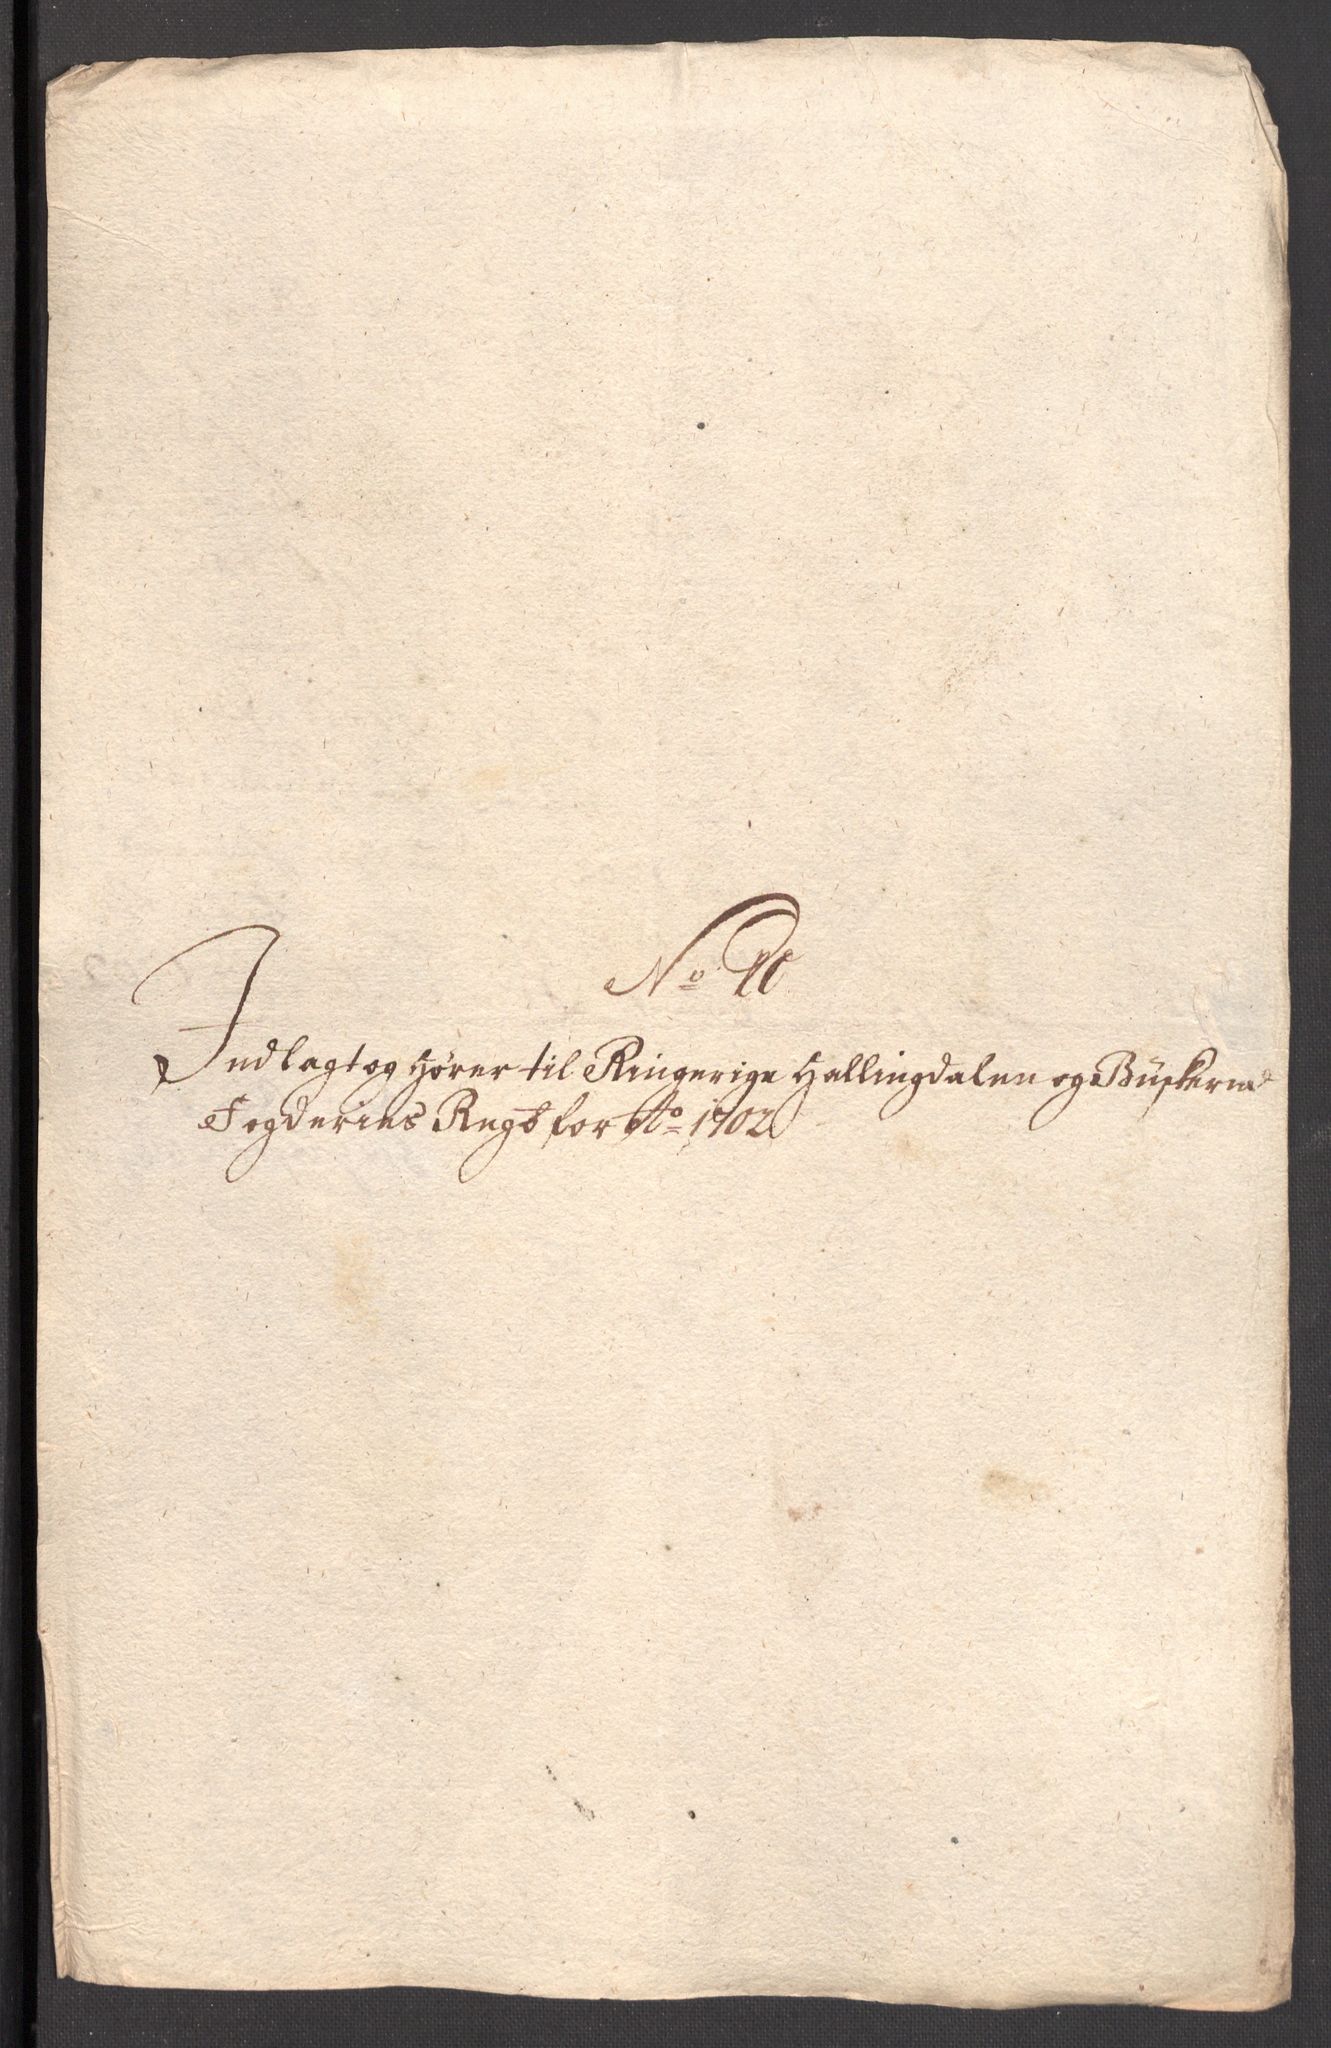 No
Indlagt og Hører til Ringerige Hallingdalen og Buskerud
Fogderies Regs for Ao 1702